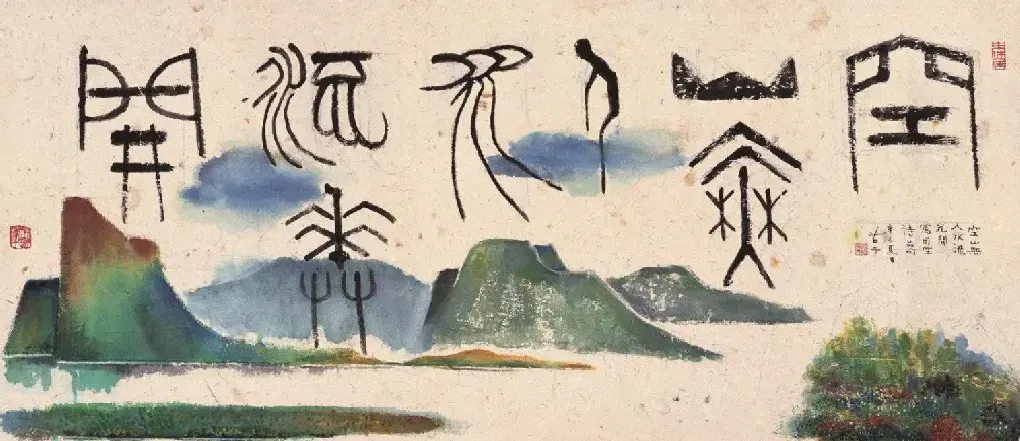 空山無人水流花開
空山無
人水流
花開
古干